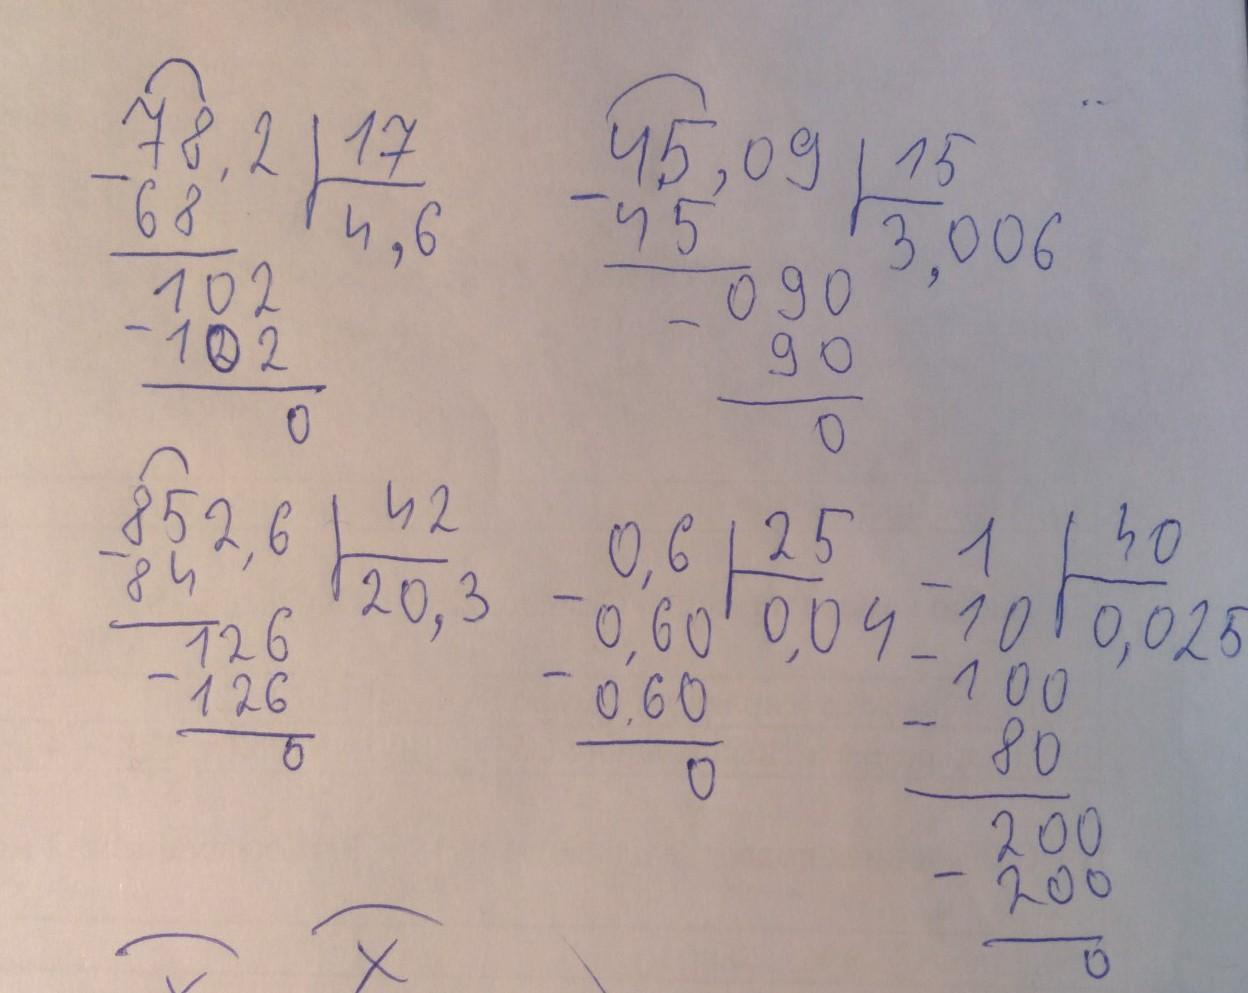 78,2 | 17
- 68 | 4,6
102
- 102
0
45,09 | 15
- 45 | 3,006
090
- 90
0
852,6 | 42
- 84 | 20,3
126
- 126
0
0,6 | 25
- 0,60 | 0,04
- 0,60
0
- 1 | 40
- 10 | 0,025
- 100
80
200
- 200
0
x x